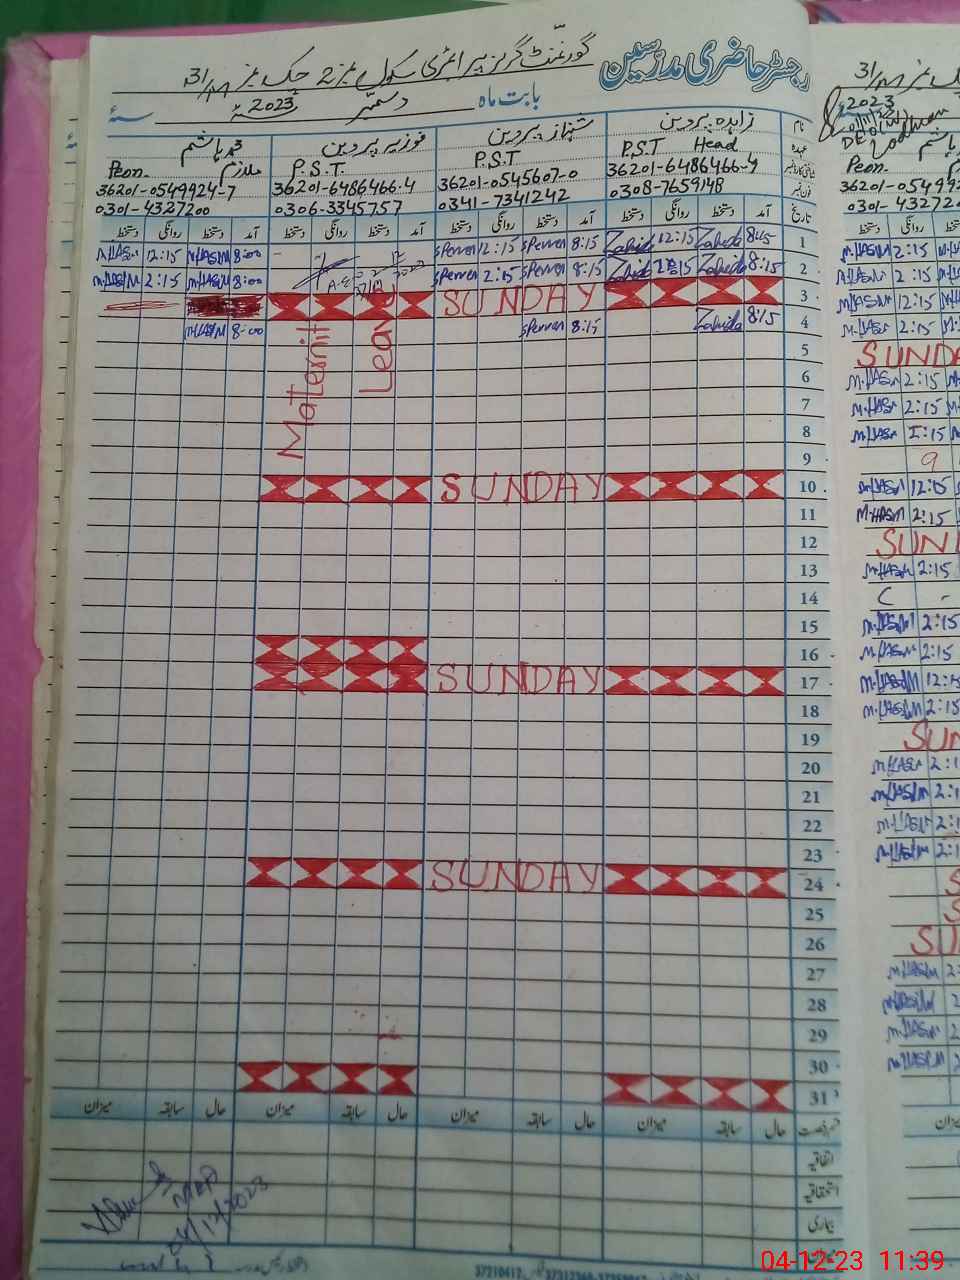 رجسٹر حاضری مدرسین گورنمنٹ گرلز پرائمری سکول نمبر 2 چک نمبر 31/M
بابت ماہ دسمبر 2023 سنۂ
نام زاہدہ پروین شہناز پروین فوزیہ پروین محمد ہاشم
عہدہ P.S.T Head P.S.T P.S.T. ملازم Peon.
36201-6486466-4 36201-0545607-0 36201-6486466-4 36201-0549924-7
0308-7659148 0341-7341242 0306-3345757 0301-4327200
تاریخ آمد دستخط روانگی دستخط آمد دستخط روانگی دستخط آمد دستخط روانگی دستخط آمد دستخط روانگی دستخط
1 8:15 Zahida 12:15 Zahida 8:15 SPerven 12:15 SPerven 8:00 M.HASM 12:15 M.HASM
2 8:15 Zahida Zahida 8:15 SPerven 2:15 SPerven 8:00 M.HASM 2:15 M.HASM
3 SUNDAY
4 8:15 Zahida 8:15 SPerven 8:00 M.HASM
Maternit
Leave
5
6
7
8
9
10 SUNDAY
11
12
13
14
15
16
17 SUNDAY
18
19
20
21
22
23
24 SUNDAY
25
26
27
28
29
30
31
قسم رخصت حال سابقہ میزان حال سابقہ میزان حال سابقہ میزان حال سابقہ میزان
اتفاقیہ
استحقاقیہ
بیماری
04/12/2023
31/M
2023
DEO (W)
Lodhran
Peon.
36201-05499
0301-43272
دستخط روانگی
M.HASM 2:15
M.HASM 2:15
M.HASM 12:15
M.HASM 2:15
SUNDA
M.HASM 2:15
M.HASM 2:15
M.HASM 1:15
9
M.HASM 12:15
M.HASM 2:15
SUN
M.HASM 2:15
C -
M.HASM 2:15
M.HASM 2:15
M.HASM 12:15
M.HASM 2:15
SUN
M.HASM 2:1
M.HASM 2:1
M.HASM 2:1
M.HASM 2:1
S
S
SU
M.HASM 2:
M.HASM 2
M.HASM 2:
M.HASM 2
04-12-23 11:39